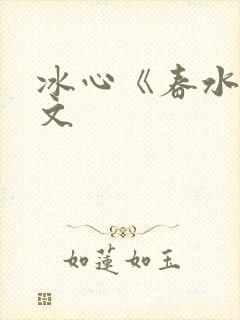 冰心《春水
文
如莲如玉